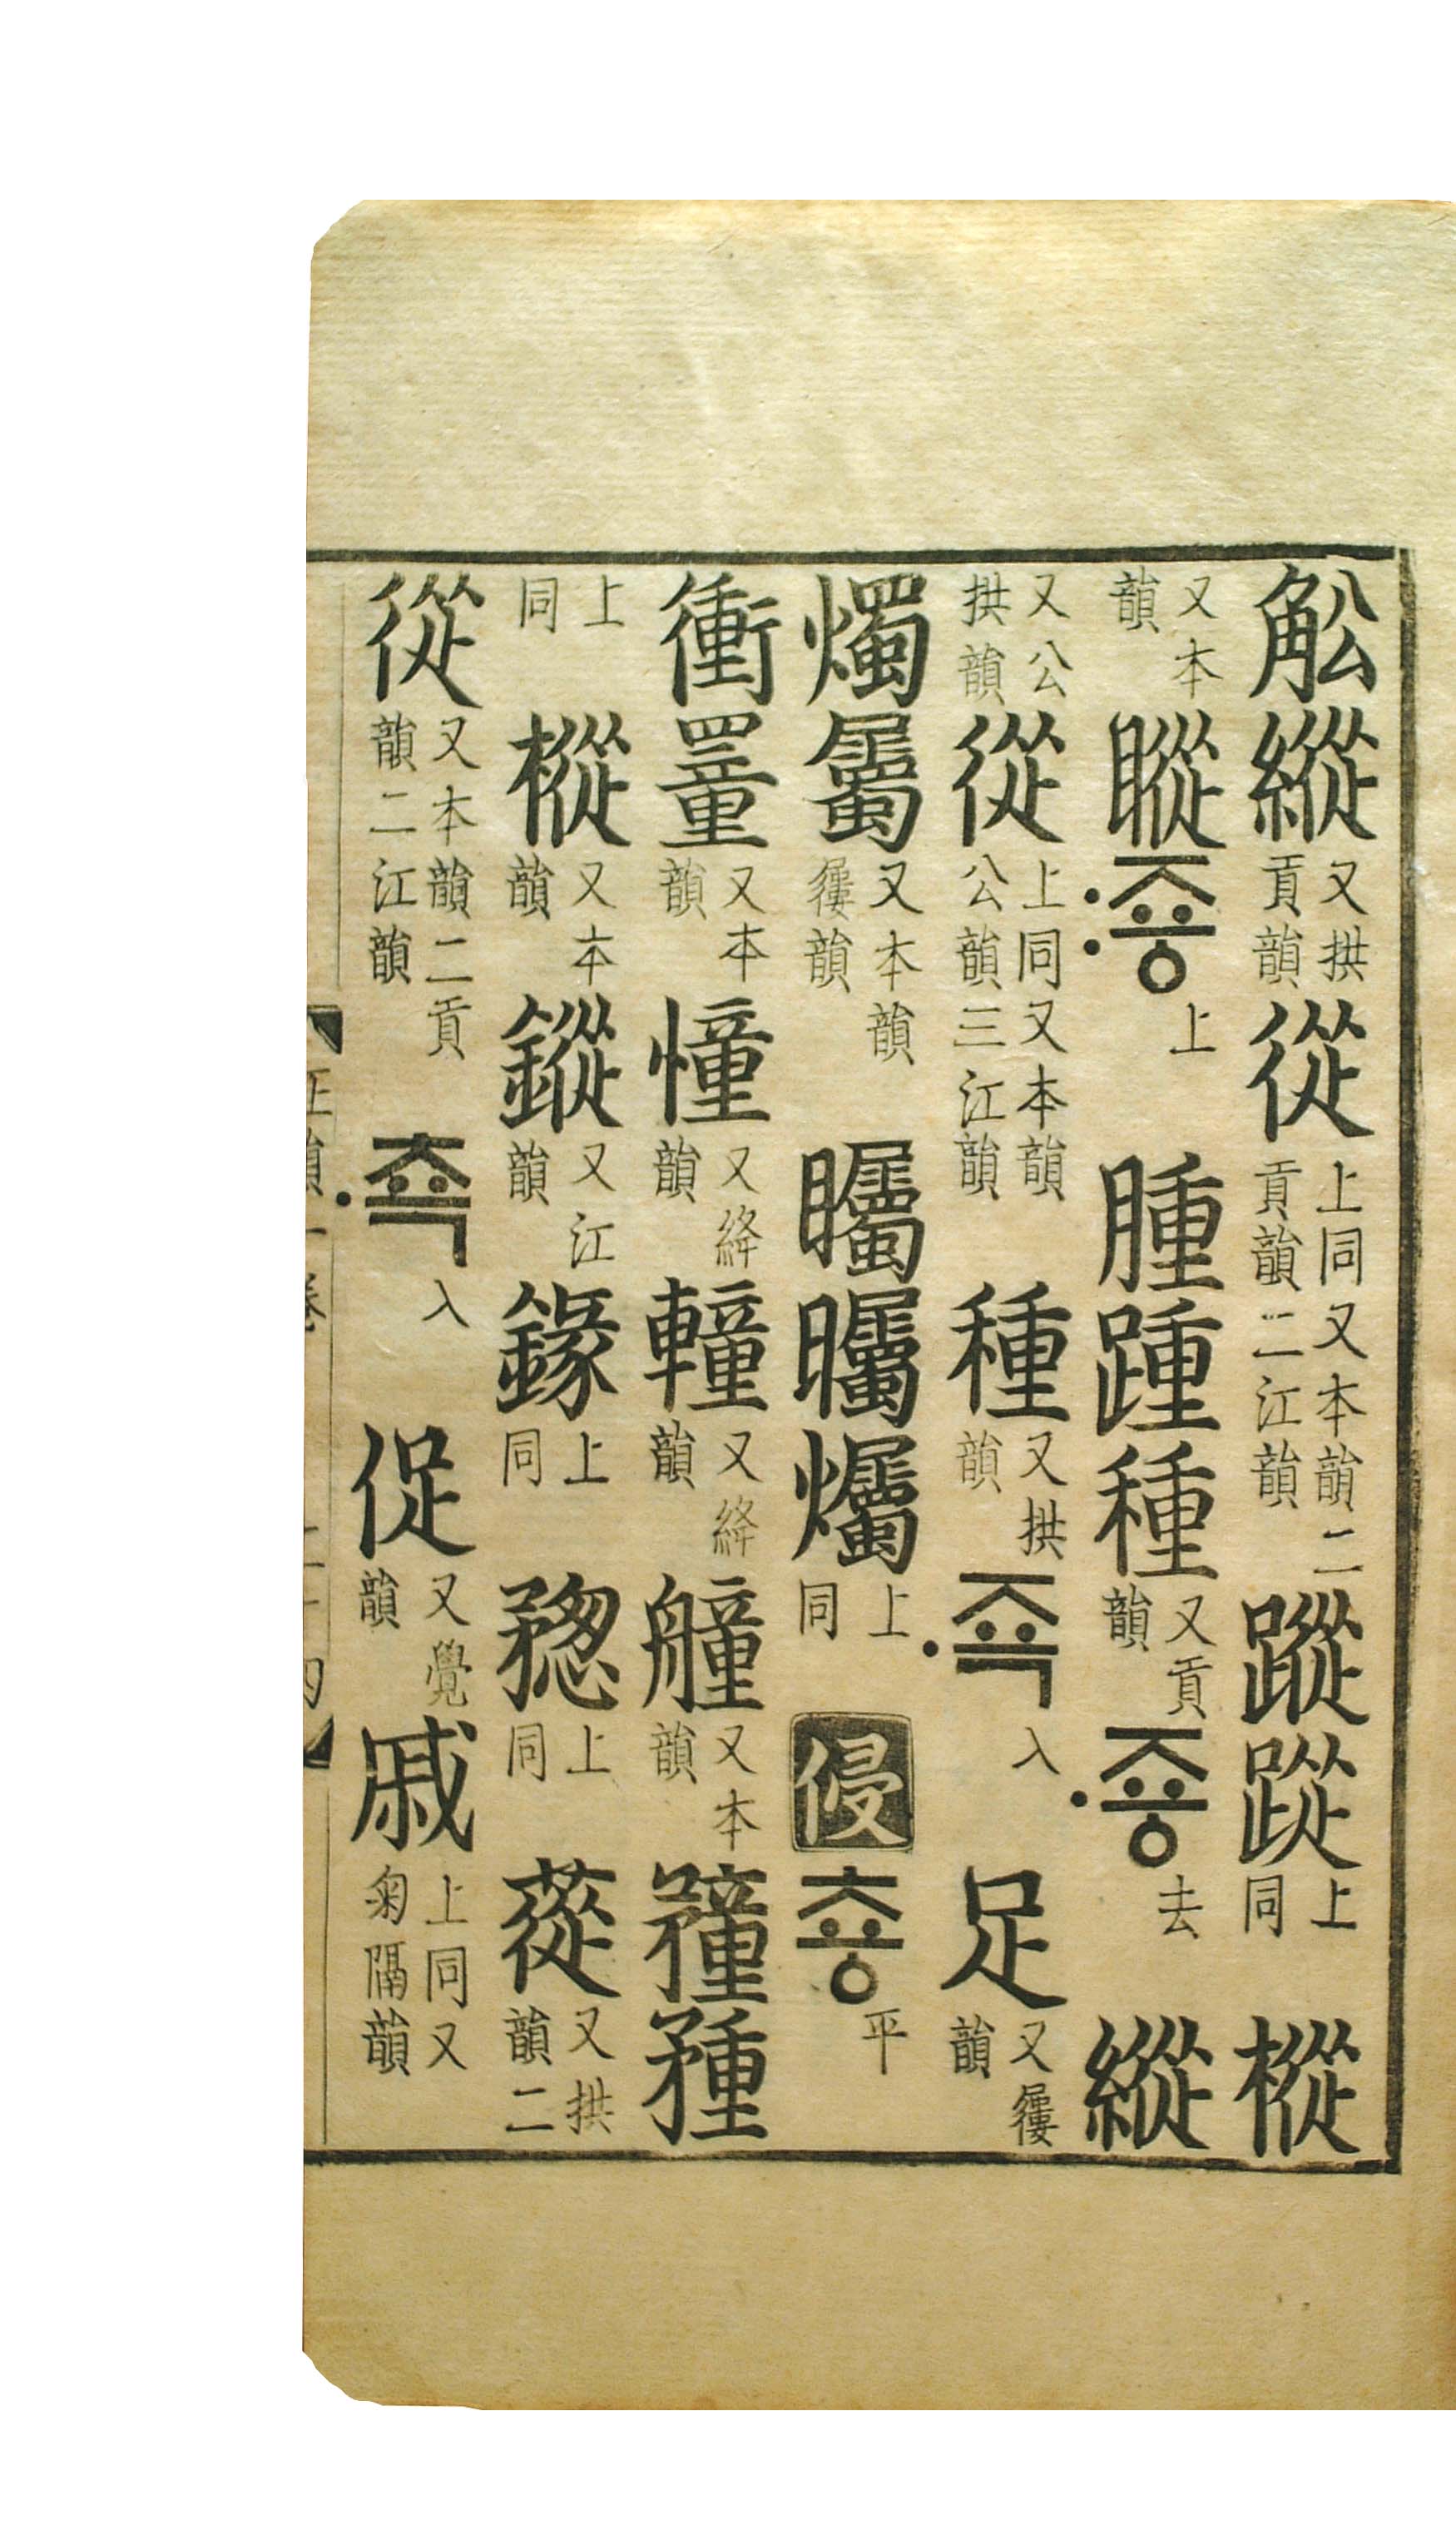 䚗縱又拱貢韻從上同又本韻二貢韻二江韻蹤上同樅
又本韻瞛〯죵上腫踵種又貢韻〮죵去縱
又公拱韻從上同又本韻公韻三江韻種又拱韻〮죡入足又屨韻
燭屬又本韻屨韻矚曯爥上同侵쵱平
衝罿又本韻憧又絳韻𨎴又絳韻艟又本韻
上同樅又本韻鏦又江韻上同上同蓯又拱韻二
從又本韻二貢韻二江韻〮쵹入促又覺韻戚上同又菊隔韻